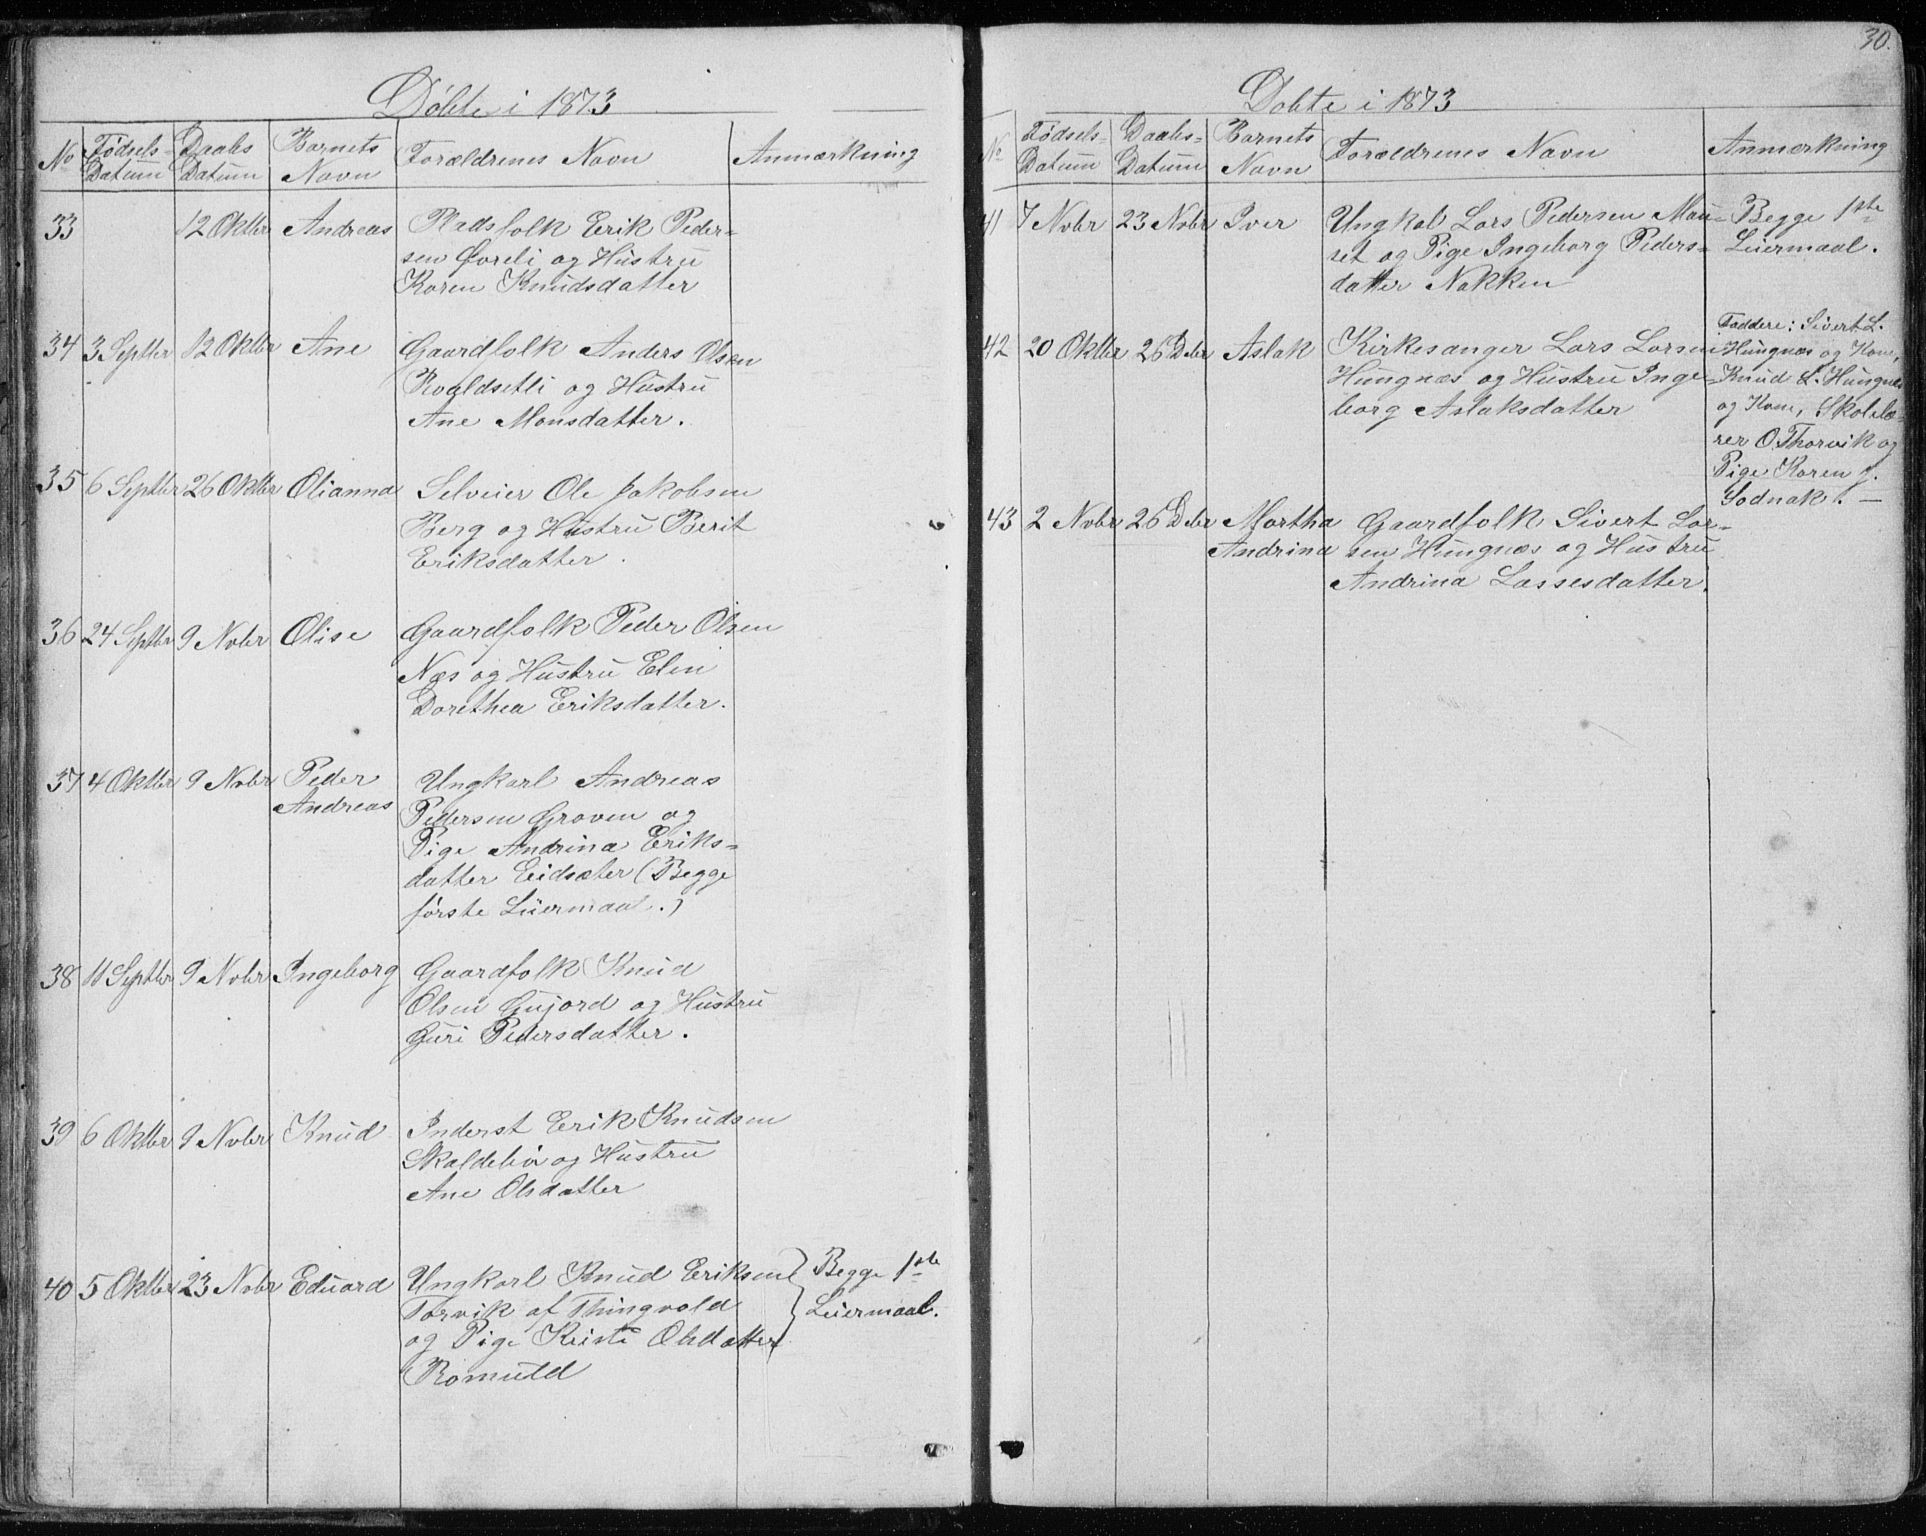 Døbte i 1873
No Fødsels- Daabs Barnets Forældrenes Navn Anmærkning
Datum Datum Navn
33 12 Oktbr Andreas Pladsfolk Erik Peder-
sen Øvreli og Hustru
Karen Knudsdatter
34 3 Septbr 12 Oktbr Ane Gaardfolk Anders Olsen
Roaldsetli og Hustru
Ane Monsdatter.
35 6 Septbr 26 Oktbr Olianna Selveier Ole Jakobsen
Berg og Hustru Berit
Eriksdatter.
36 24 Septbr 9 Novbr Olise Gaardfolk Peder Olsen
Næs og Hustru Elen
Dorethea Eriksdatter.
37 4 Oktbr 9 Novbr Peder Ungkarl Andreas
Andreas Pedersen Groven og
Pige Andrina Eriks-
datter Eidsæter (Begge
første Leiermaal.)
38 11 Septbr 9 Novbr Ingeborg Gaardfolk Knud
Olsen Gujord og Hustru
Guri Pedersdatter.
39 6 Oktbr 9 Novbr Knud Inderst Erik Knudsen
og Hustru
Ane Olsdatter
40 5 Oktbr 23 Novbr Eduard Ungkarl Knud Eriksen Begge 1ste
Torvik af Thingvold Leiermaal.
og Pige Kirsti Olsdatter
30.
Dobte i 1873
No Fødsels- Daabs- Barnets Forældrenes Navn Anmærkning
Datum Datum Navn
41 7 Nobr 23 Nobr Iver Ungkal Lars Pedersen Mau- Begge 1ste
set og Pige Ingeborg Peders- Leiermaal.
datter Nakken
42 20 Oktbr 26 Debr Aslak Kirkesanger Lars Larsen
Hungnæs og Hustru Inge-
borg Aslaksdatter
Faddere: Sivert L.
Hungnæs og Kone,
Knud L. Hungnæs
og Kone, Skolelæ-
rer O Thorvik og
Pige Karen J.
Sodnak. —
43 2 Nobr 26 Debr Martha Gaardfolk Sivert Lar-
Andrina sen Hungnæs og Hustru
Andrina Lassesdatter.